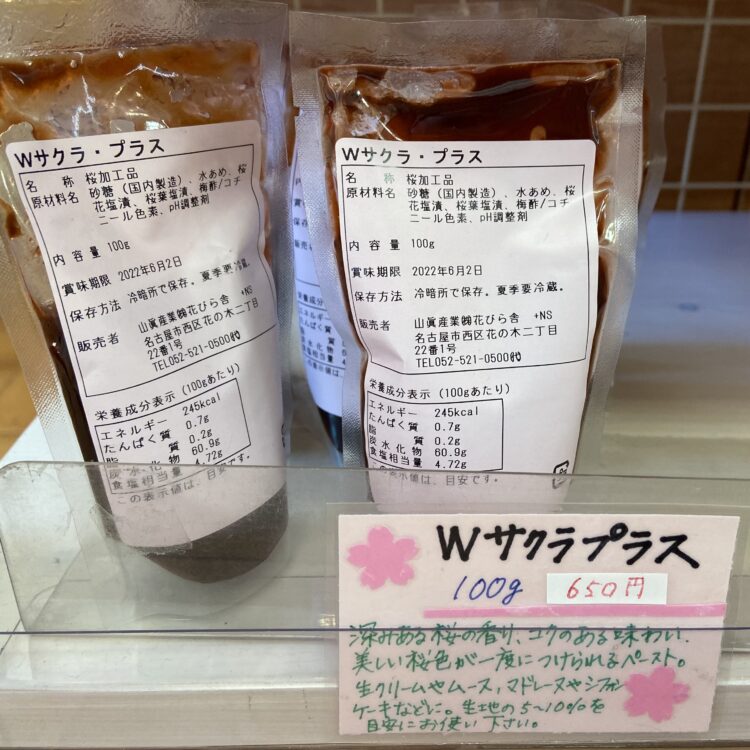 Wサクラ・プラス
名　称　桜加工品
原材料名　砂糖（国内製造）、水あめ、桜
花塩漬、桜葉塩漬、梅酢/コチ
ニール色素、pH調整剤
内容量　100g
賞味期限　2022年6月2日
保存方法　冷暗所で保存。夏季要冷蔵。
販売者　山眞産業㈱花びら舎　+NS
名古屋市西区花の木二丁目
22番1号
TEL052-521-0500㈹
栄養成分表示（100gあたり）
エネルギー　245kcal
たんぱく質　0.7g
脂　質　0.2g
炭水化物　60.9g
食塩相当量　4.72g
この表示値は、目安です。
Wサクラ・プラス
名　称　桜加工品
原材料名　砂糖（国内製造）、水あめ、桜
花塩漬、桜葉塩漬、梅酢/コチ
ニール色素、pH調整剤
内容量　100g
賞味期限　2022年6月2日
保存方法　冷暗所で保存。夏季要冷蔵。
販売者　山眞産業㈱花びら舎　+NS
名古屋市西区花の木二丁目
22番1号
TEL052-521-0500㈹
栄養成分表示（100gあたり）
エネルギー　245kcal
たんぱく質　0.7g
脂　質　0.2g
炭水化物　60.9g
食塩相当量　4.72g
この表示値は、目安です。
Wサクラプラス
100g　650円
深みある桜の香り、コクのある味わい、
美しい桜色が一度につけられるペースト。
生クリームやムース、マドレーヌやシフォン
ケーキなどに。生地の5～10%を
目安にお使い下さい。